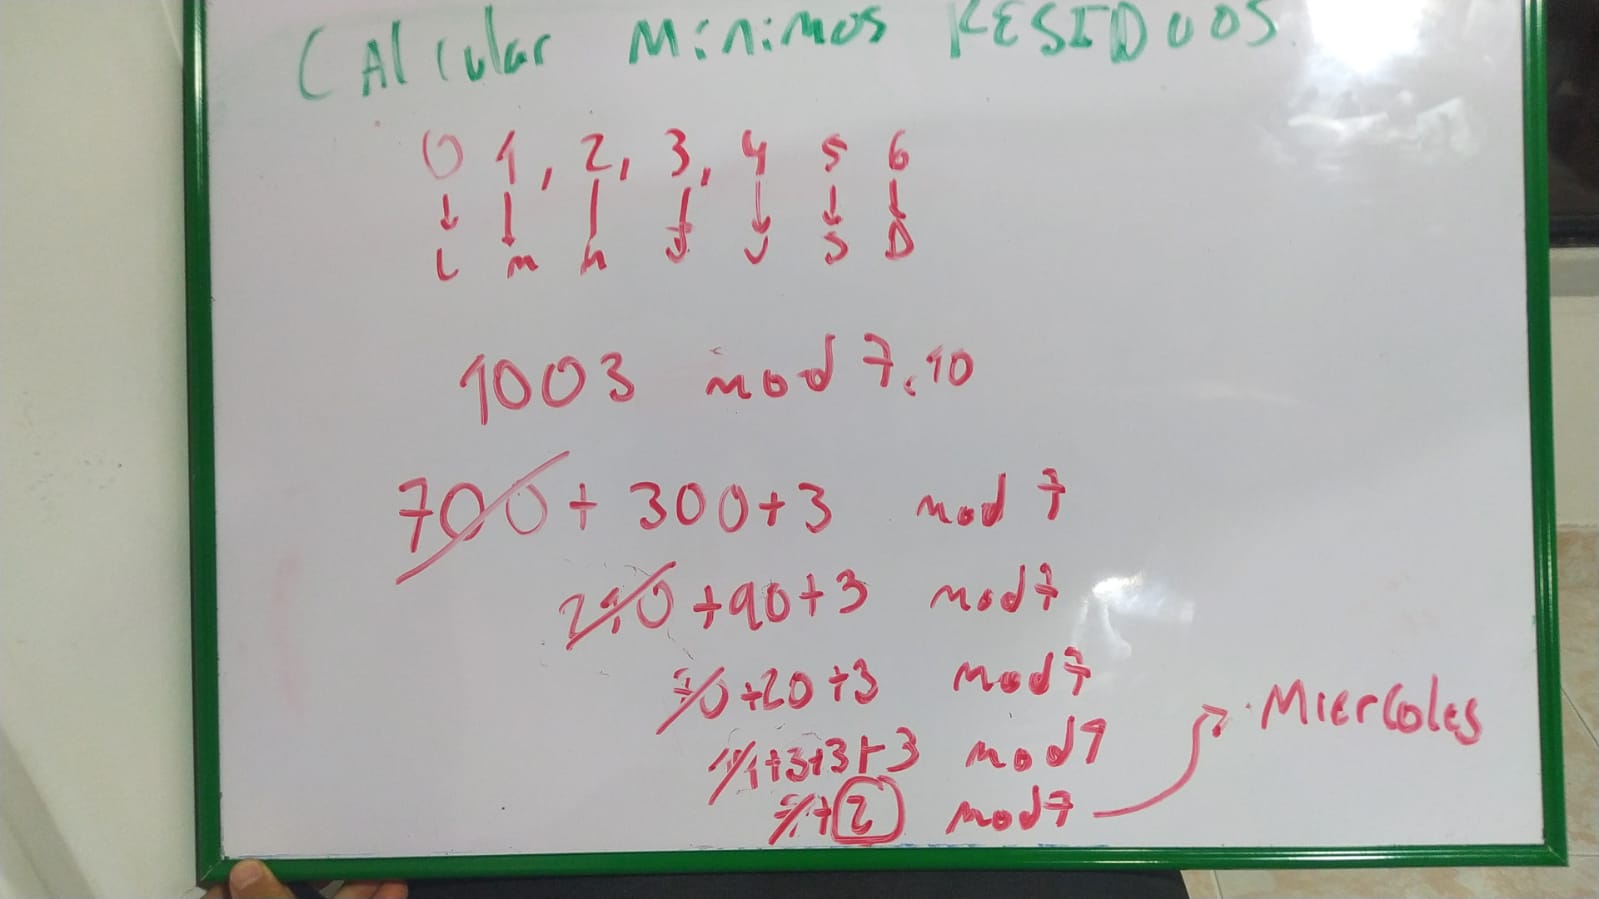 CAlcular Minimos RESIDUOS
0 1, 2, 3, 4 5 6
L m m J V S D
1003 mod 7.10
700 + 300+3 mod 7
210 +90+3 mod 7
70+20+3 mod 7
+3+3+3 mod 7
7+2 mod 7
Miercoles